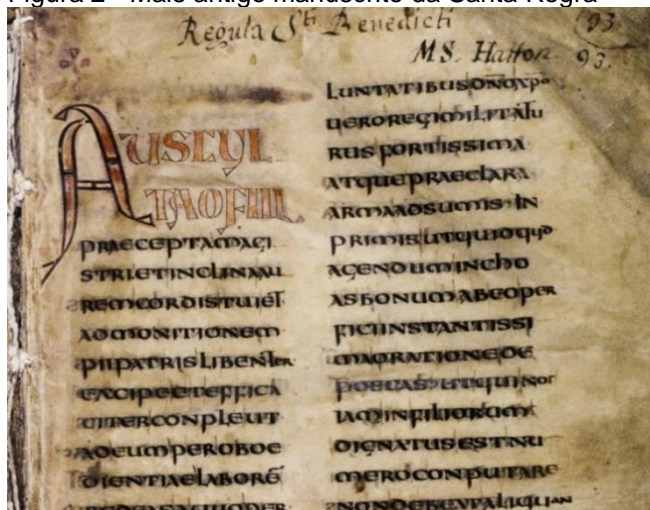 Figura 2 - Mais antigo manuscrito da Santa Regra
Regula Sti Benedicti
93
MS. Hatton
93.
AUSCUL
TAOFILI
PRAECEPTAMAGI
STRIETINCLINAAU
REMCORDISTUIET
ADMONITIONEM
PIIPATRISLIBENTER
EXCIPEETEFFICA
CITERCONPLEUT
ADEUMPEROBOE
DIENTIAELABORĒ
LUNTATIBUSDNOXPO
UEROREGIMILITATU
RUSFORTISSIMA
ATQUEPRAECLARA
ARMAADSUMIS·IN
PRIMISUTQUIDQUID
AGENDUMINCHO
ASBONUMABEOPER
FICIINSTANTISSI
MAORATIONEDE
POSCAS·UTQUINOS
IAMINFILIORUM
DIGNATUSESTNU
MEROCONPUTARE
NONDEBEATALIQUAN